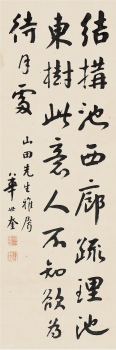 結構池西廊疏理池
東樹此意人不知欲為
待月處
山田先生雅屬
華世奎